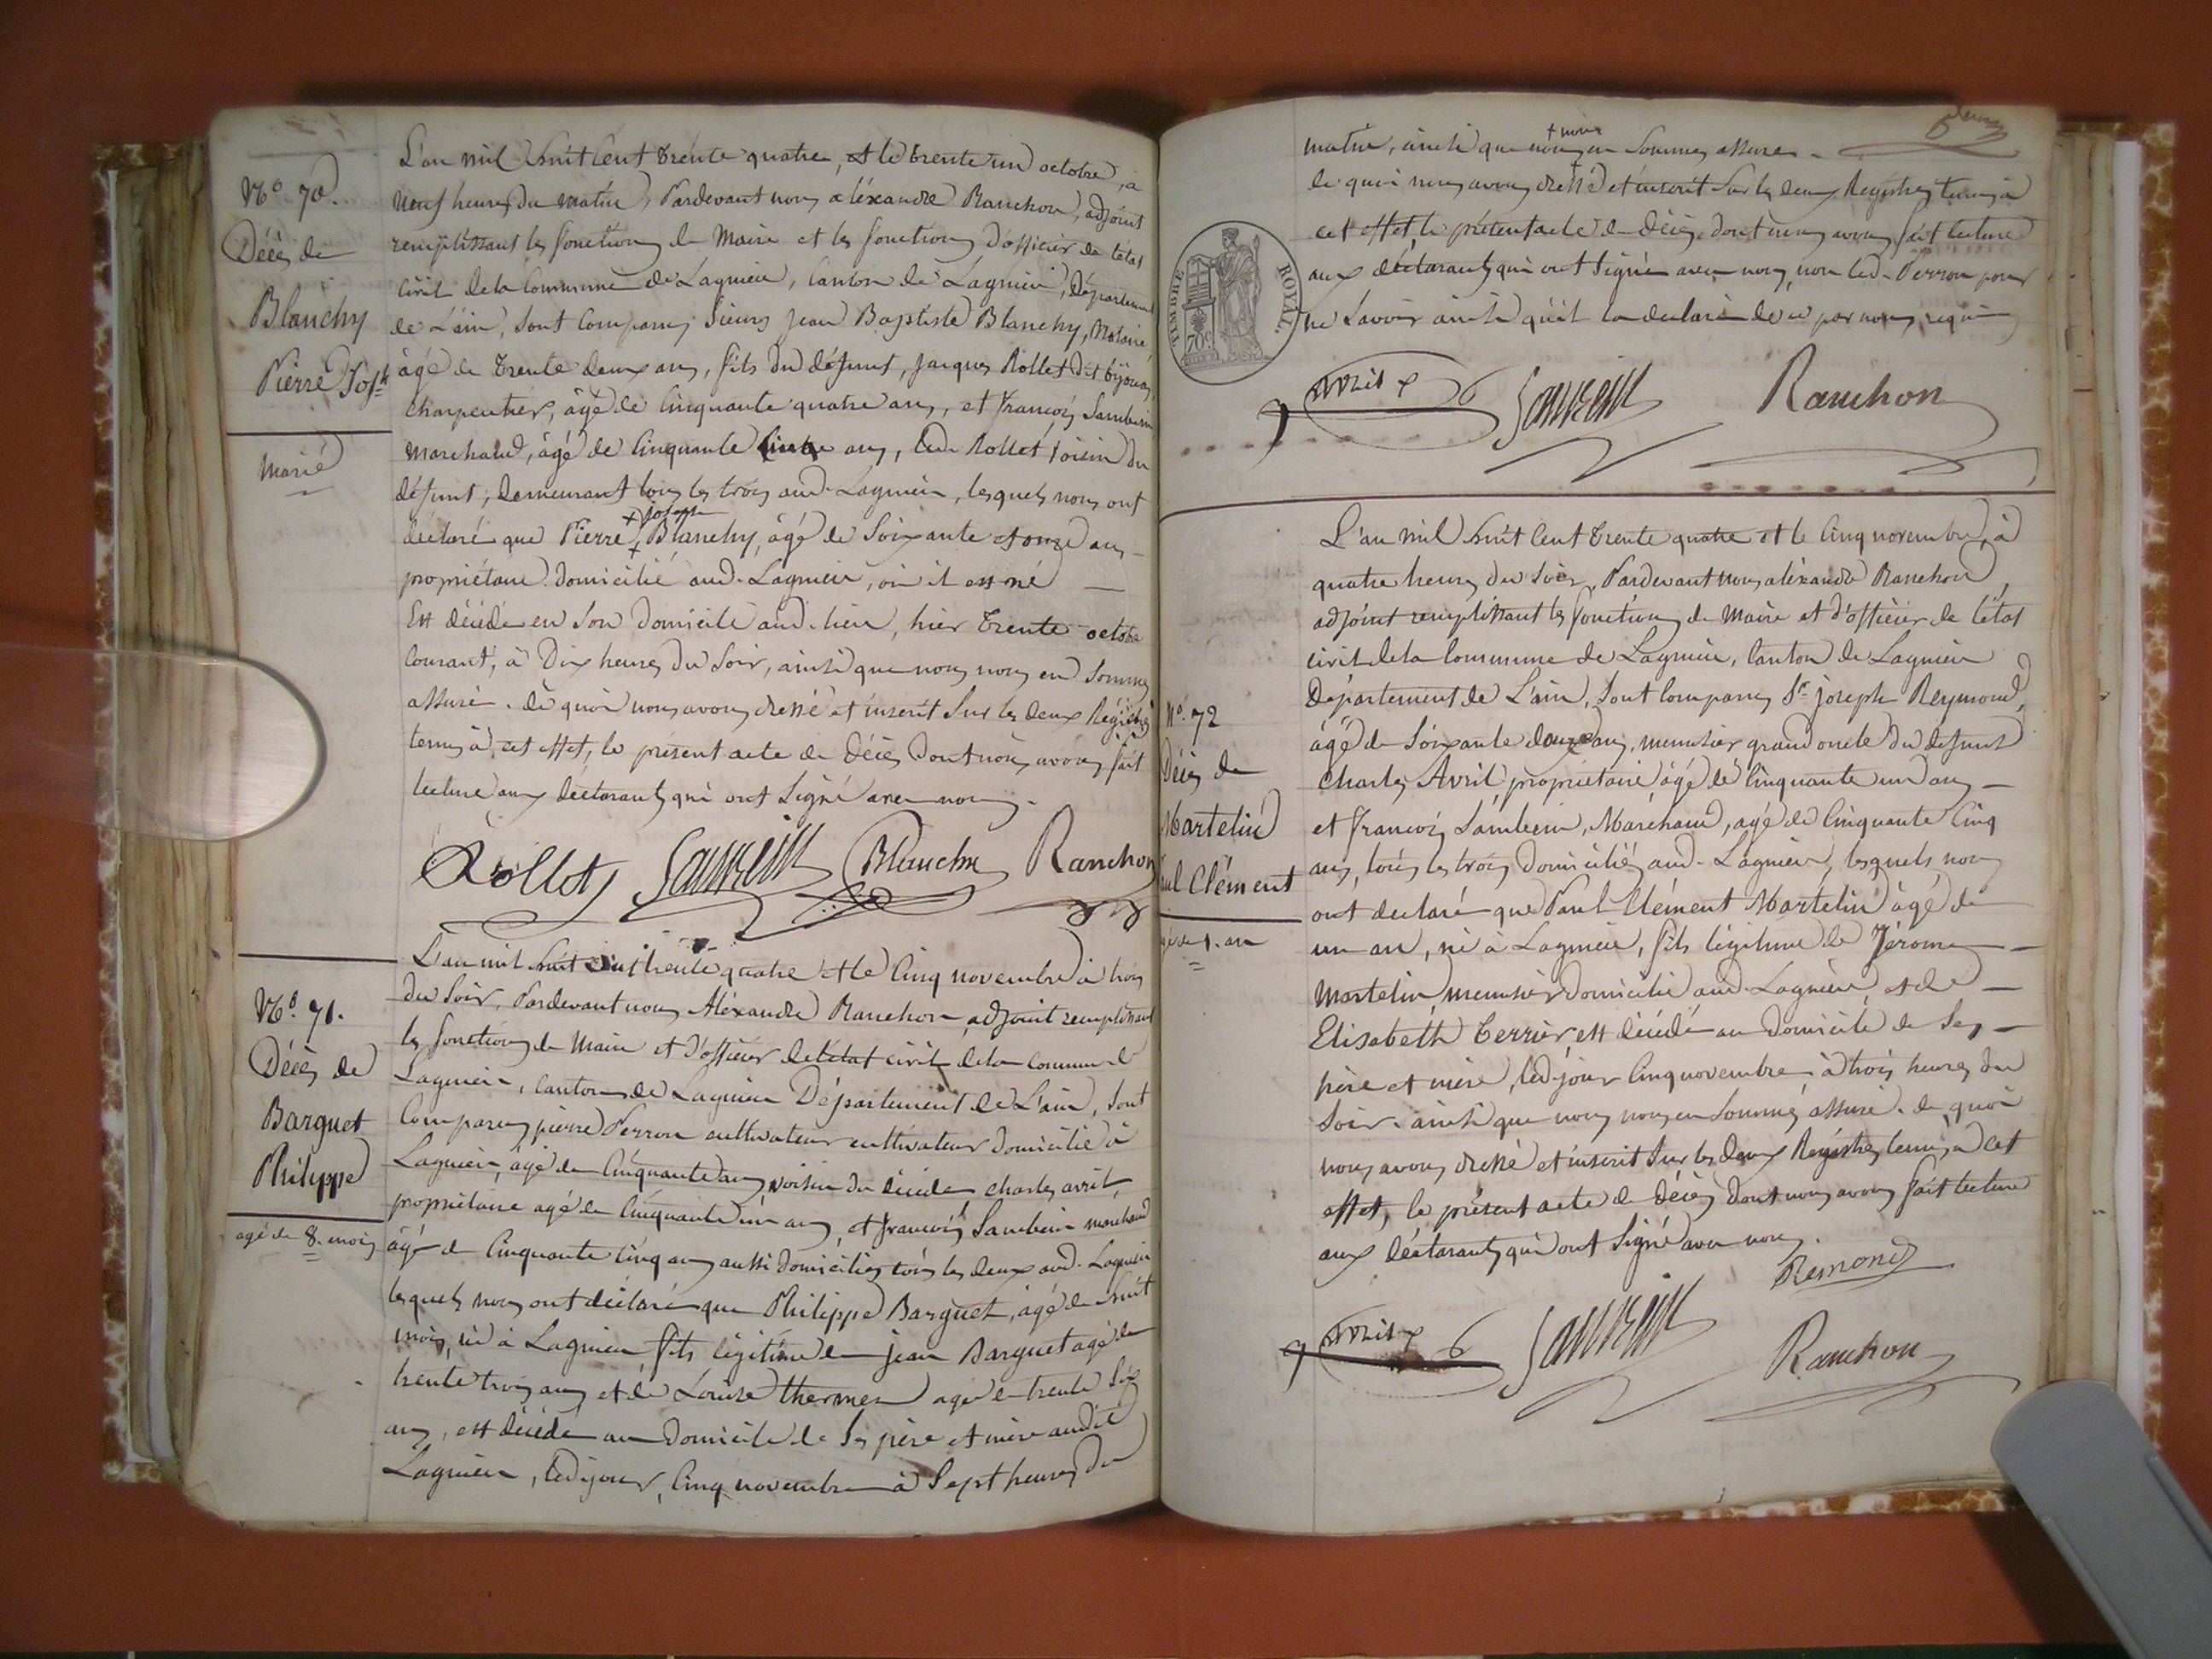 N° 70.
Décès de
Blanchy
Pierre Josh
Marié
L'an mil huit cent trente quatre, et le trente un octobre, à
neuf heures du matin, Pardevant nous aléxandre Ranchon, adjoint
remplissant les fonctions de Maire et les fonctions d'officier de l'état
civil de la Commune de Lagnieu, Canton de Lagnieu, Département
de L'ain, Sont Comparus Sieurs Jean Baptiste Blanchy, Notaire
âgé de trente deux ans, fils du défunt, Jacques Rollet dit bijoux,
charpentier, âgé de Cinquante quatre ans, et François Sambein
Marchand, âgé de Cinquante ans, led. Rollet voisin du
défunt, demeurant tous les trois aud. Lagnieu, lesquels nous ont
+ joseph
déclaré que Pierre + Blanchy, âgé de Soixante et onze ans
propriétaire domicilié aud. Lagnieu, où il est né
Est décédé en Son domicile aud. lieu, hier trente octobre
Courant, à Dix heures du Soir, ainsi que nous nous en Sommes
assuré. de quoi nous avons dressé et inscrit Sur les deux Régistres
tenus à cet effet, le présent acte de décès dont nous avons fait
lecture aux déclarants qui ont Signé avec nous.
Rollet Sambein Blanchy Ranchon
N° 71.
Décès de
Barguet
Philippe
agé de 8. mois
L'an mil huit cent trente quatre et le Cinq novembre à trois
du Soir, Pardevant nous Aléxandre Ranchon adjoint remplissant
les fonctions de Maire et d'officier de l'état civil de la commune de
Lagnieu, canton de Lagnieu Département de L'ain, Sont
Comparus pierre Perron cultivateur cultivateur domicilié à
Lagnieu, âgé de Cinquante ans, voisin du décédé, charles avril,
propriétaire agé de Cinquante un ans, et françois Sambein marchand
âgé de Cinquante Cinq ans aussi domiciliés tous les deux aud. Lagnieu
lesquels nous ont déclaré que Philippe Barguet, âgé de huit
mois, né à Lagnieu, fils légitime de jean Barguet agé de
trente trois ans et de Louise thermes agé de trente Six
ans, est décédé au domicile de Ses père et mère audit
Lagnieu, led. jour, Cinq novembre à Sept heures du
matin, ainsi que nous en Sommes assurés.
+ nous
de quoi nous avons dressé et inscrit Sur les deux Registres tenus à
cet effet, le présent acte de décès dont nous avons fait lecture
aux déclarants qui ont Signé avec nous, non led. Perron pour
ne Savoir ainsi qu'il l'a déclaré de ce par nous requis
TIMBRE ROYAL.
70c
avril Sambein Ranchon
N°. 72
Décès de
Martelin
Clément
1. an
L'an mil huit Cent trente quatre et le Cinq novembre, à
quatre heures du Soir, Pardevant nous, aléxandre Ranchon,
adjoint remplissant les fonctions de Maire et d'officier de l'état
civil de la Commune de Lagnieu, Canton de Lagnieu
Département de L'ain, Sont Comparus Sr. joseph Reymond,
âgé de Soixante douze ans, menuisier grand oncle du défunt
Charles Avril propriétaire, âgé de Cinquante un ans
et François Sambein, Marchand, agé de Cinquante Cinq
ans, tous les trois domiciliés aud. Lagnieu, lesquels nous
ont déclaré que Paul Clément Martelin âgé de
un an, né à Lagnieu, fils légitime de Jérome
Martelin menuisier domicilié aud. Lagnieu, et de
Elisabeth Terrier, est décédé au domicile de Ses
père et mère, led. jour Cinq novembre à trois heures du
Soir. ainsi que nous nous en Sommes assuré. de quoi
nous avons dressé et inscrit Sur les deux Régistres tenus à cet
effet, le présent acte de décès dont nous avons fait lecture
aux déclarants qui ont Signé avec nous.
Remond
avril Sambein Ranchon